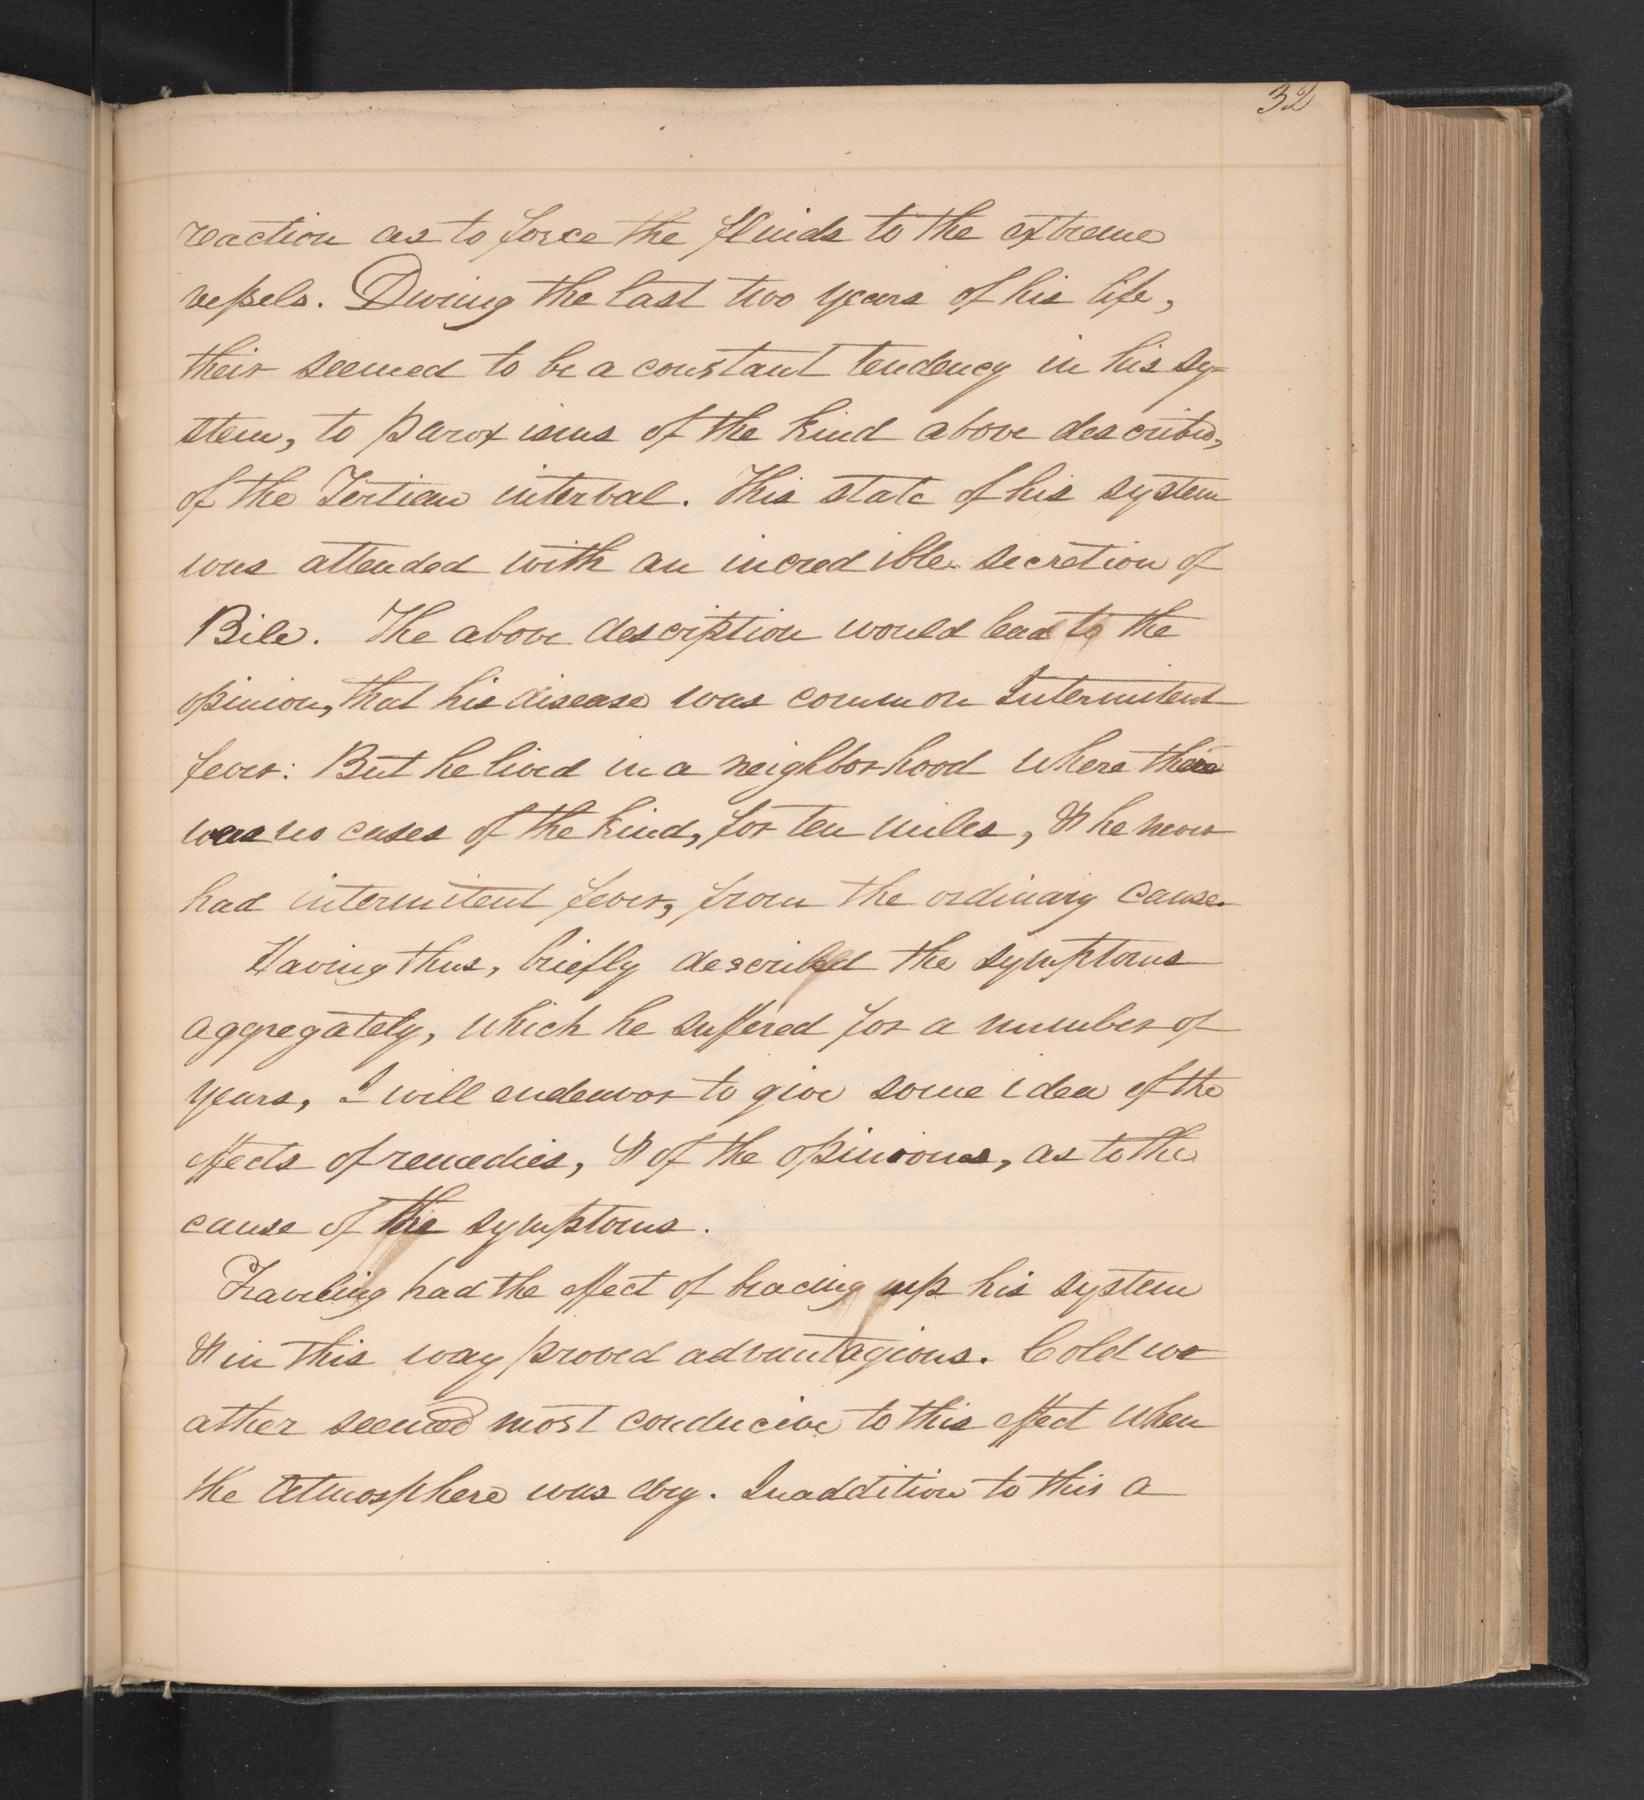 32
reaction as to force the fluids to the extreme
vessels. During the last two years of his life,
their seemed to be a constant tendency in his sy-
stem, to parox isms of the kind above described,
of the Tertian interval. This state of his system
was attended with an incredible secretion of
Bile. The above description would lead to the
opinion, that his disease was common Intermitent
fever: But he lived in a neighborhood where there
was no cases of the kind, for ten miles, & he never
had intermitent fever, from the ordinary cause.
Having thus, briefly described the symptoms
aggregately, which he suffered for a number of
years, I will endeavor to give some idea of the
effects of remedies, & of the opinions, as to the
cause of the symptoms.
Traveling had the effect of bracing up his system
& in this way proved advantagious. Cold we
ather seemed most conducive to this effect when
the Atmosphere was dry. In addition to this a